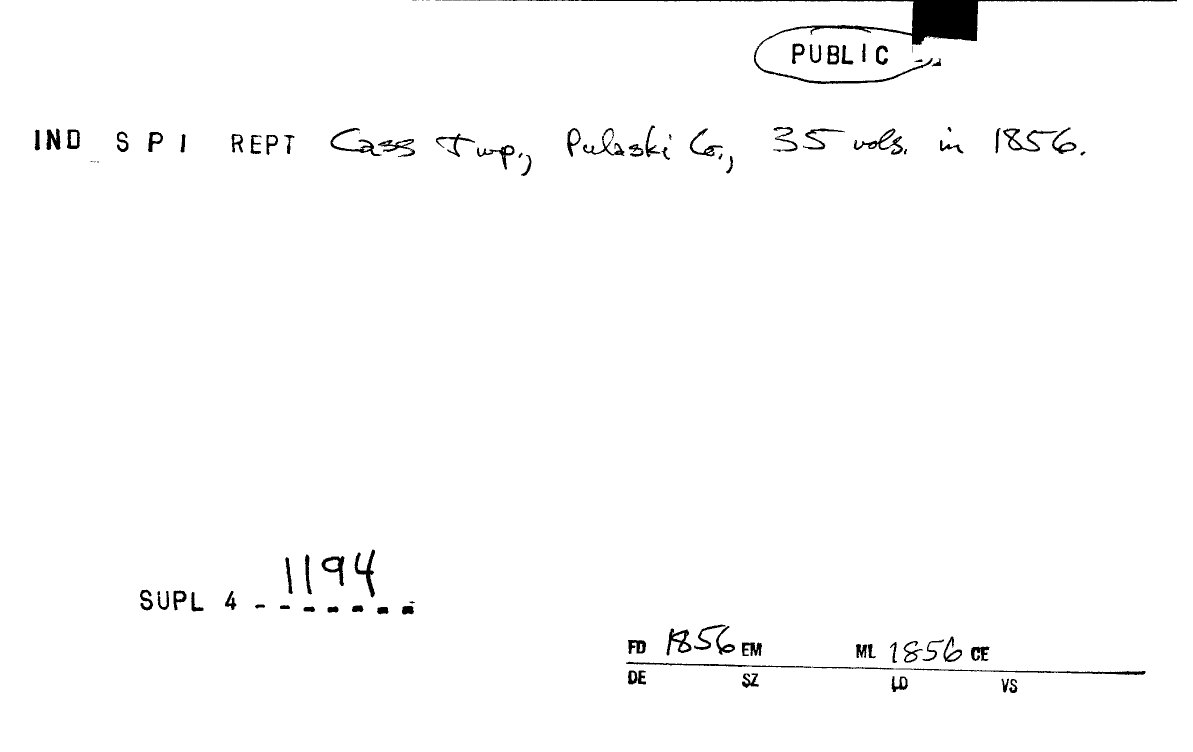 PUBLIC
IND S P I REPT Cass Twp., Pulaski Co., 35 vols. in 1856.
1194
SUPL 4 - - - - - - -
FD 1856 EM ML 1856 CE
DE SZ LD VS